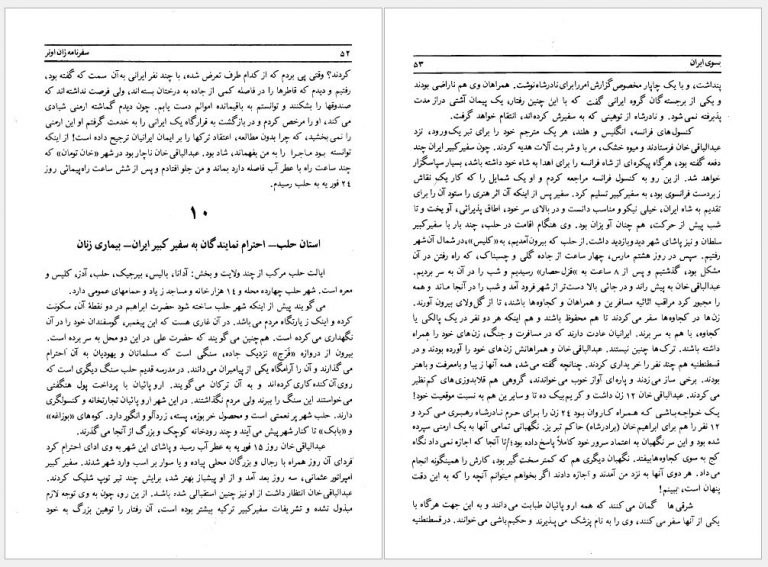 ۵۲
سفرنامه ژان اوتر
کردند؟ وقتی پی بردم که از کدام طرف تعرض شده، با چند نفر ایرانی به آن سمت که گفته بود،
رفتیم و دیدم که قاطرها را در فاصله کمی از جاده به درختان بسته‌اند، ولی فرصت نداشته‌اند که
صندوقها را بشکنند و توانستم به باقیمانده اموالم دست یابم. چون دیدم گماشته ارمنی شیادی
می کند، او را مرخص کردم و در بازگشت به قرارگاه یک ایرانی را به خدمت گرفتم او این ارمنی
را نمی بخشید، که چرا بدون مطالعه، اعتقاد ترکها را بر ایمان ایرانیان ترجیح داده است! از اینکه
توانسته بود ماجرا را به من بفهماند، شاد بود. عبدالباقی خان ناچار بود در شهر «خان تومان» که
چند ساعت راه با عطر آب فاصله دارد بماند و من جلو افتادم و پس از شش ساعت راه‌پیمائی روز
۲۴ فوریه به حلب رسیدم.
۱۰
استان حلب– احترام نمایندگان به سفیر کبیر ایران– بیماری زنان
ایالت حلب مرکب از چند ولایت و بخش: آدانا، بالیس، بیرجیک، حلب، آذر، کلیس و
معره است. شهر حلب چهارده محله و ۱۴ هزار خانه و مساجد زیاد و حمامهای عمومی دارد.
می گویند پیش از اینکه شهر حلب ساخته شود حضرت ابراهیم در دو نقطهٔ آن، سکونت
کرده و اینک زیارتگاه مردم می‌باشد. در آن غاری هست که این پیغمبر، گوسفندان خود را در آن
نگهداری می کرده است. هم‌چنین می گویند که حضرت علی در این دو محل به سر برده است.
بیرون از دروازه «فَرَج» نزدیک جاده، سنگی است که مسلمانان و یهودیان به آن احترام
می گذارند و آن را آرامگاه یکی از پیامبران می دانند. در مدرسه قدیم حلب سنگ دیگری است که
روی آن کنده کاری کرده‌اند و به آن ترکان می گویند. اروپائیان با پرداخت پول هنگفتی
می‌خواستند این سنگ را ببرند ولی مردم نگذاشتند. در این شهر اروپائیان تجارتخانه و کنسولگری
دارند. حلب شهر پر نعمتی است و محصول خربوزه، پسته، زردآلو و انگور دارد. کوه‌های «بوزاغه»
و «بابک» تا کنار شهر پیش می آیند و چند رودخانه کوچک و بزرگ از آنجا می گذرند.
عبدالباقی خان روز ۱۵ فوریه به عطر آب رسید و پاشای این شهر به وی ادای احترام کرد
فردای آن روز همراه با رجال و بزرگان محلی پیاده و یا سوار بر اسب وارد شهر شدند. سفیر کبیر
امپراتور عثمانی، سه روز بعد آمد و از او پیشباز بهتر شد، برایش چند تیر توپ شلیک کردند.
عبدالباقی خان انتظار داشت از او نیز چنین استقبالی شده باشد. از این رو، چون به وی توجه لازم
مبذول نشده و تشریفات سفیر کبیر ترکیه بیشتر بوده است، آن رفتار را توهین بزرگ به خود
بسوی ایران
۵۳
پنداشت، و با یک چاپار مخصوص گزارش امر را برای نادرشاه نوشت. همراهان وی هم ناراضی بودند
و یکی از برجستگان گروه ایرانی گفت که با این چنین رفتار، یک پیمان آشتی دراز مدت
پذیرفته نمی‌شود. و نادرشاه از توهینی که به سفیرش کرده‌اند، انتقام خواهد گرفت.
کنسول‌های فرانسه، انگلیس و هلند، هر یک مترجم خود را برای تبریک ورود، نزد
عبدالباقی خان فرستادند و میوه خشک، مربا و شربت آلات هدیه کردند. چون سفیر کبیر ایران چند
دفعه گفته بود، هرگاه پیکره‌ای از شاه فرانسه را برای اهدا به شاه خود داشته باشد، بسیار سپاسگزار
خواهد شد. از این رو به کنسول فرانسه مراجعه کردم و او یک شمایل را که کار یک نقاش
زبردست فرانسوی بود، به سفیر کبیر تسلیم کرد. سفیر پس از اینکه آن اثر هنری را ستود آن را برای
تقدیم به شاه ایران، خیلی نیکو و مناسب دانست و در بالای سر خود، اطاق پذیرائی، آویخت و تا
شب پیش از حرکت، هم چنان آویزان بود. وی هنگام اقامت در حلب، چند بار با سفیر کبیر
سلطان و نیز پاشای شهر دید و بازدید داشت. از حلب که بیرون آمدیم، به «کلیس»، در شمال آن شهر
رفتیم. سپس در روز هشتم مارس، چهار ساعت از جاده گلی و چسبناک، که راه رفتن در آن
مشکل بود، گذشتیم و پس از ۸ ساعت به «قزل‌حصار» رسیدیم و شب را در آن به سر بردیم.
عبدالباقی خان به پیش راند و در جائی بالا دست‌تر از شهر فرود آمد و شب را در آنجا ماند و همه
را مجبور کرد مراقب اثاثیه مسافرین و همراهان و کجاوه‌ها باشند، تا از گل‌ولای بیرون آورند.
زن‌ها در کجاوه‌ها سفر می کردند تا هم محفوظ باشند و هم اینکه هر دو نفر در یک پالکی یا
کجاوه، با هم به سر برند. ایرانیان عادت دارند که در مسافرت و جنگ، زن‌های خود را همراه
داشته باشند. ترک‌ها چنین نیستند. عبدالباقی خان و همراهانش زن‌های خود را آورده بودند و در
قسطنطنیه هم چند نفر را خریداری کردند. چنانچه گفته می‌شد، همه آنها زیبا و بامعرفت و باهنر
بودند. برخی ساز می‌زدند و پاره‌ای آواز خوب می‌خواندند، گروهی هم قلابدوزی‌های کم‌نظیر
می کردند. عبدالباقی خان ۱۲ زن داشت و کریم بیک ده تا و سایرین هم به نسبت موقعیت خود!
یک خواجه‌باشی که همراه کاروان بود ۲۴ زن را برای حرم نادرشاه رهبری می کرد و
۱۲ نفر را هم برای ابراهیم خان (برادرشاه) حاکم تبریز. نگهبانی تمامی آنها به یک ارمنی سپرده
شده بود و این سر نگهبان به اعتماد سرور خود کاملاً پاسخ داده بود؛ تا آنجا که اجازه نمی داد نگاه
کج به سوی کجاوه‌ها بیفتد. نگهبان دیگری هم که کمتر سخت گیر بود، کارش را همینگونه انجام
می‌داد. هر دوی آنها به نزد من آمدند و اجازه دادند اگر بخواهم میتوانم آنچه را که به این دقت
پنهان است، ببینم!
شرقی ها گمان می‌کنند که همه اروپائیان طبابت می‌دانند و به این جهت هرگاه با
یکی از آنها سفر می کنند، وی را به نام پزشک می‌پذیرند و حکیم‌باشی می خوانند. در قسطنطنیه